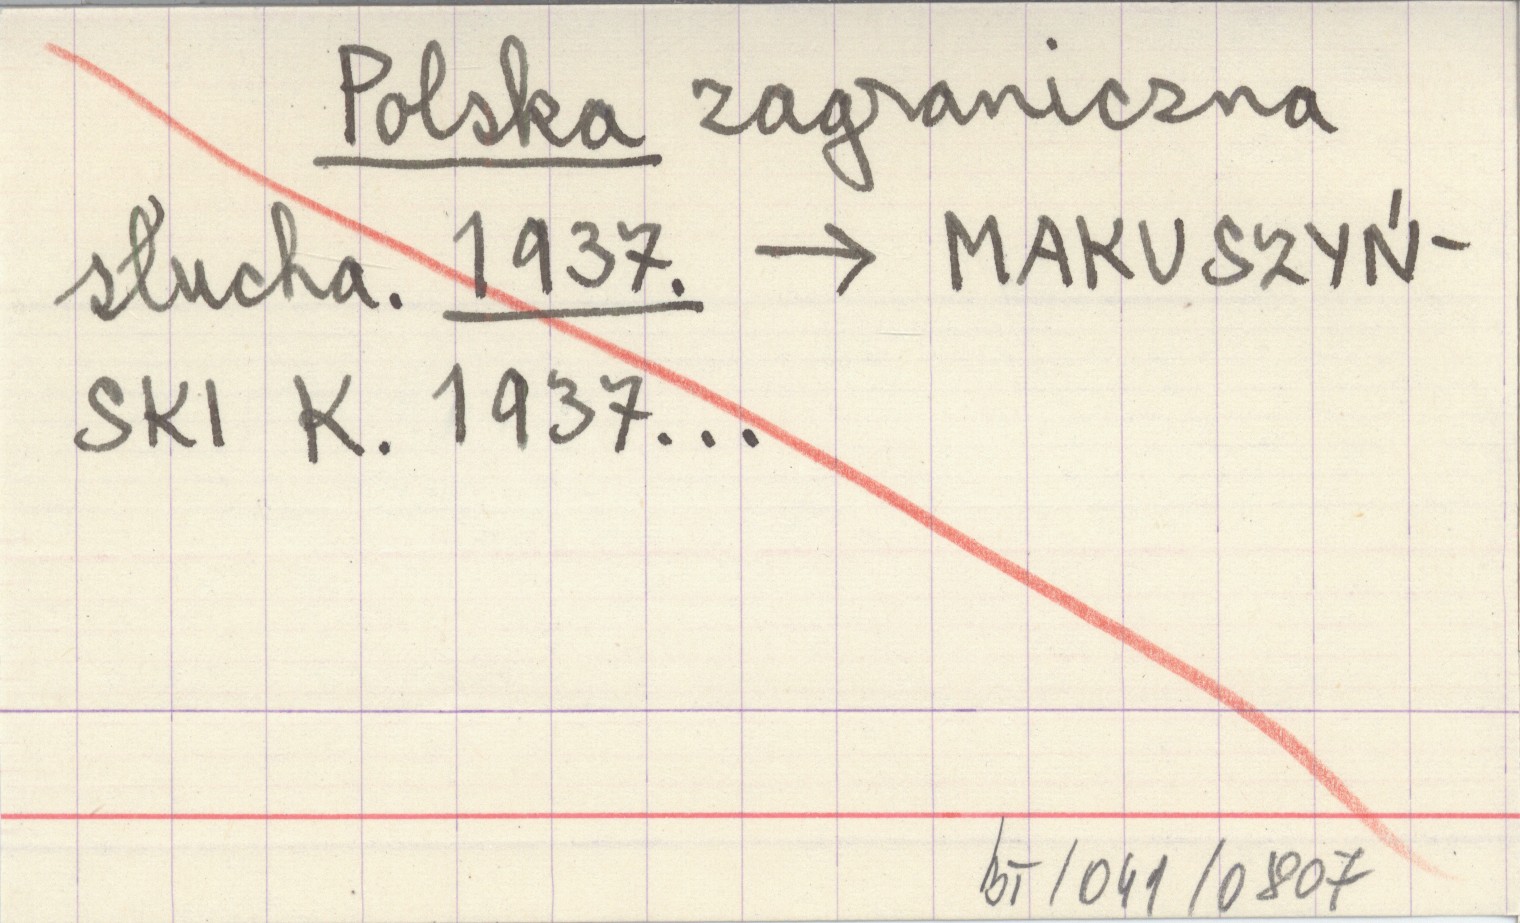 Polska zagraniczna
słucha. 1937. → MAKUSZYŃ-
SKI K. 1937...
/041/0807